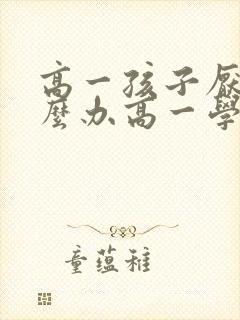 高一孩子厌
麼办高一学
童蕴稚